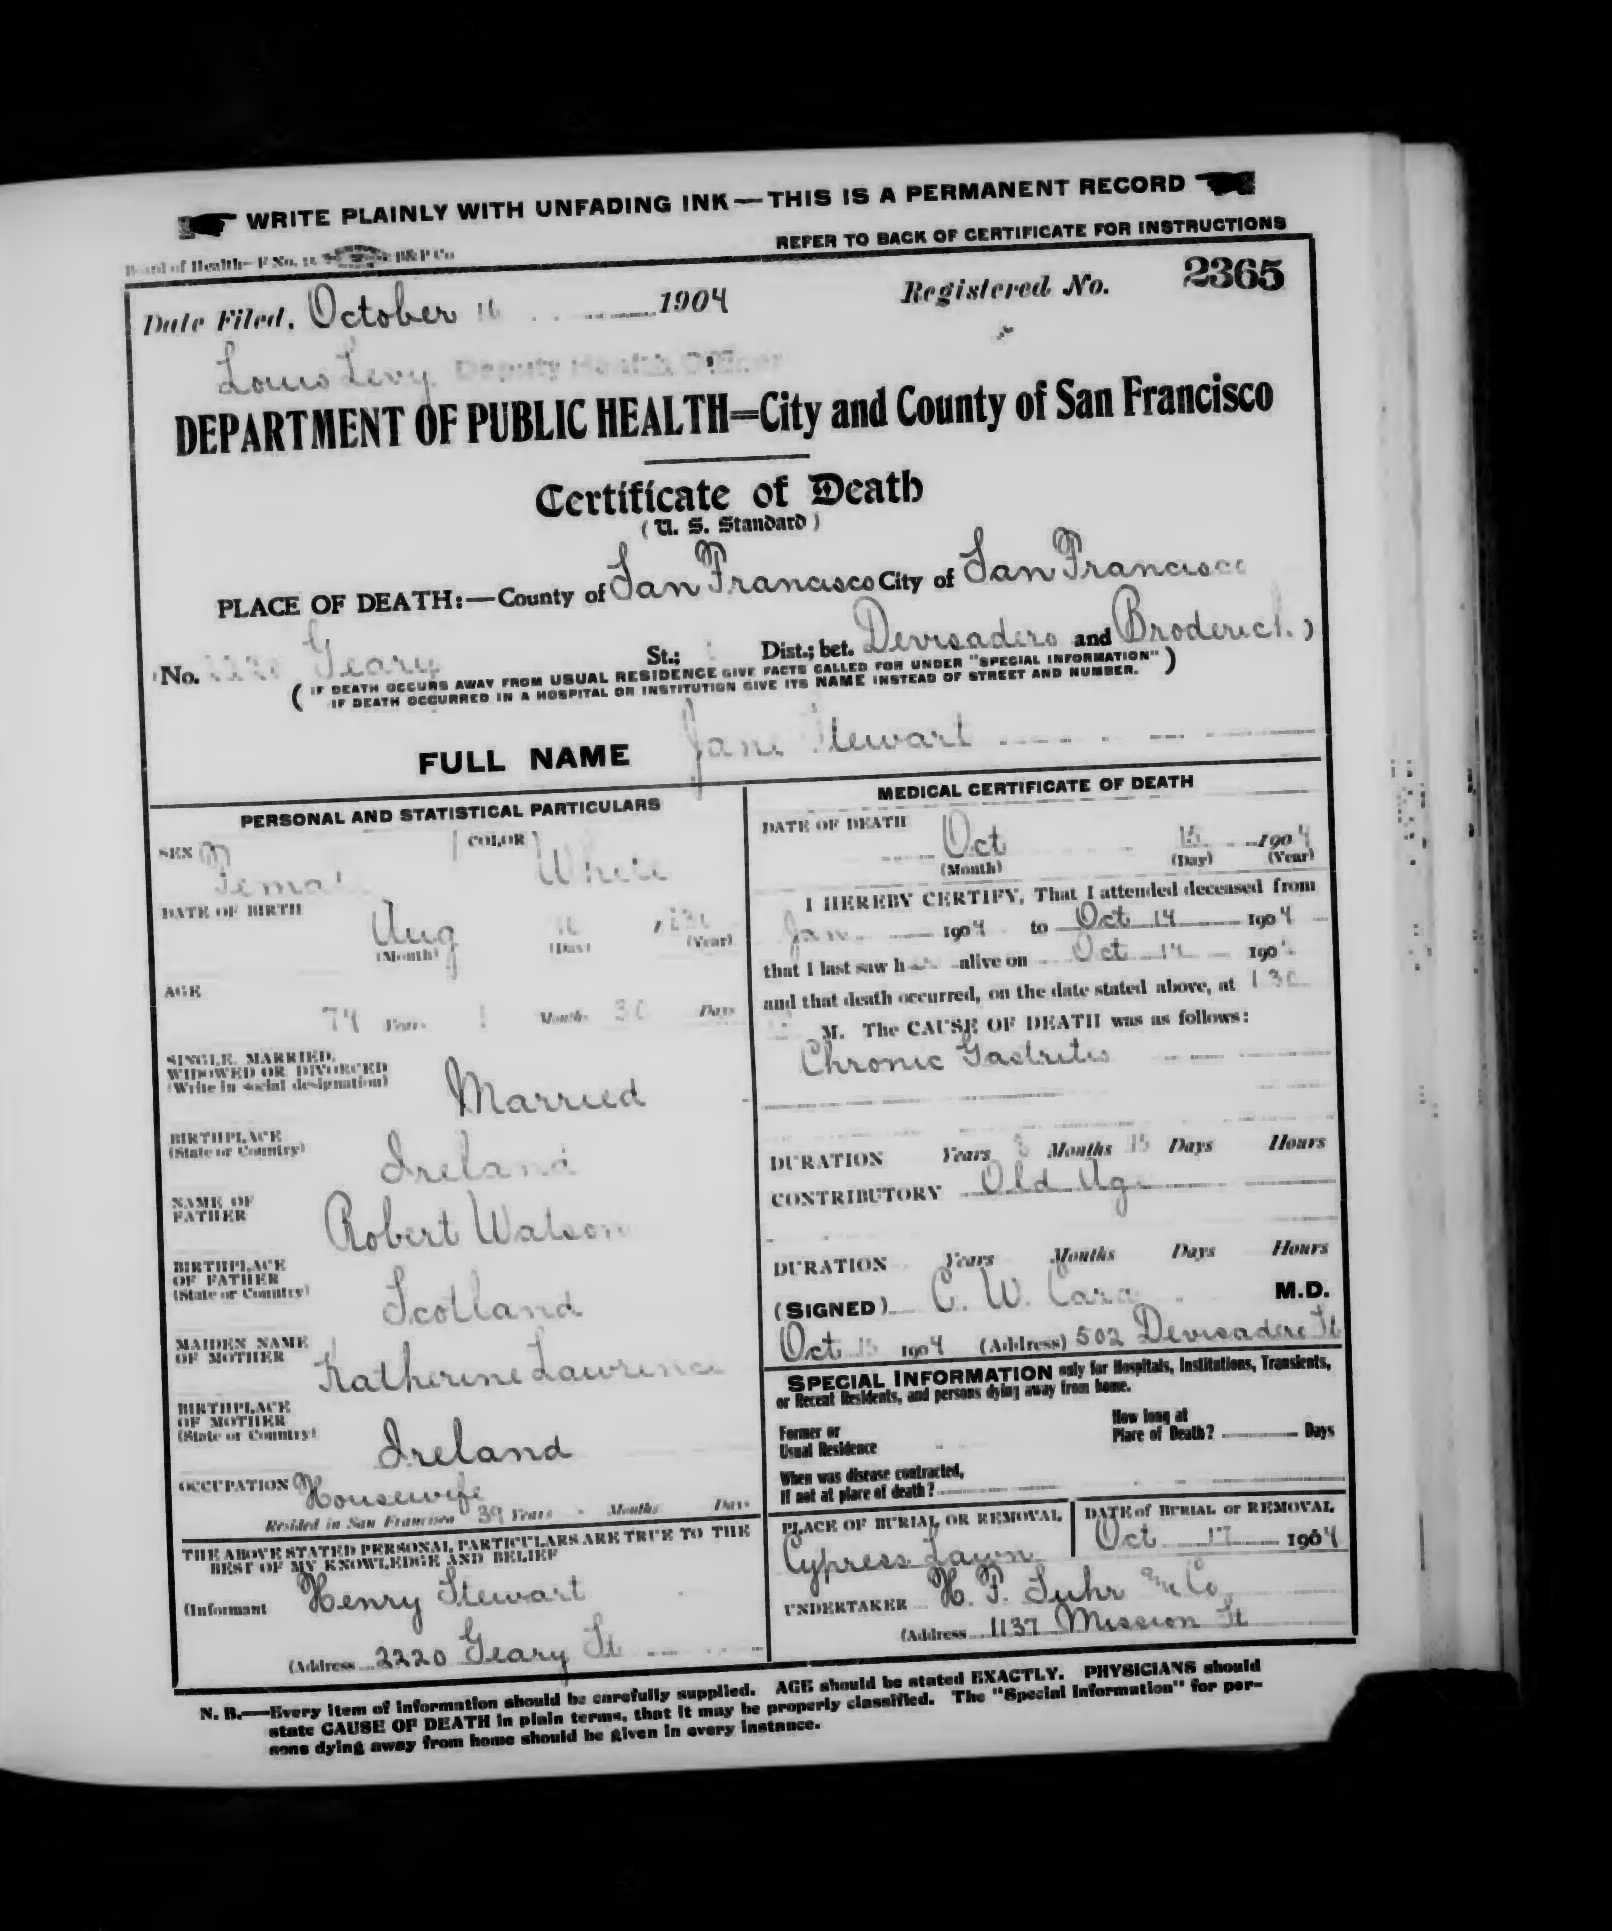 WRITE PLAINLY WITH UNFADING INK—THIS IS A PERMANENT RECORD
Board of Health—F No. B&P Co
REFER TO BACK OF CERTIFICATE FOR INSTRUCTIONS
Date Filed, October 16 1904 Registered No. 2365
Louis Levy Deputy Health Officer
DEPARTMENT OF PUBLIC HEALTH=City and County of San Francisco
Certificate of Death
(U. S. Standard)
PLACE OF DEATH:—County of San Francisco City of San Francisco
(No. 2220 Geary St.; Dist.; bet. Devisadero and Broderick)
(IF DEATH OCCURS AWAY FROM USUAL RESIDENCE GIVE FACTS CALLED FOR UNDER "SPECIAL INFORMATION"
IF DEATH OCCURRED IN A HOSPITAL OR INSTITUTION GIVE ITS NAME INSTEAD OF STREET AND NUMBER.)
FULL NAME Jane Stewart
PERSONAL AND STATISTICAL PARTICULARS
SEX Female COLOR White
DATE OF BIRTH
Aug 16
(Month) (Day) (Year)
AGE
74 Years 1 Months 30 Days
SINGLE, MARRIED,
WIDOWED OR DIVORCED
(Write in social designation) Married
BIRTHPLACE
(State or Country) Ireland
NAME OF
FATHER Robert Watson
BIRTHPLACE
OF FATHER
(State or Country) Scotland
MAIDEN NAME
OF MOTHER Katherine Lawrence
BIRTHPLACE
OF MOTHER
(State or Country) Ireland
OCCUPATION Housewife
Resided in San Francisco 39 Years - Months Days
THE ABOVE STATED PERSONAL PARTICULARS ARE TRUE TO THE
BEST OF MY KNOWLEDGE AND BELIEF
(Informant Henry Stewart
(Address 2220 Geary St
MEDICAL CERTIFICATE OF DEATH
DATE OF DEATH
Oct 15 1904
(Month) (Day) (Year)
I HEREBY CERTIFY, That I attended deceased from
Jan 1904 to Oct 14 1904
that I last saw her alive on Oct 14 1904
and that death occurred, on the date stated above, at 1 30
M. The CAUSE OF DEATH was as follows:
Chronic Gastritis
DURATION Years 8 Months 15 Days Hours
CONTRIBUTORY Old Age
DURATION Years Months Days Hours
(SIGNED) C. W. M.D.
Oct 15 1904 (Address) 502 Devisadero St
SPECIAL INFORMATION only for Hospitals, Institutions, Transients,
or Recent Residents, and persons dying away from home.
Former or
Usual Residence
How long at
Place of Death? Days
When was disease contracted,
If not at place of death?
PLACE OF BURIAL OR REMOVAL
Cypress Lawn
DATE of BURIAL or REMOVAL
Oct 17 1904
UNDERTAKER H. F. Suhr & Co
(Address 1137 Mission St
N. B.—Every item of information should be carefully supplied. AGE should be stated EXACTLY. PHYSICIANS should
state CAUSE OF DEATH in plain terms, that it may be properly classified. The "Special Information" for per-
sons dying away from home should be given in every instance.